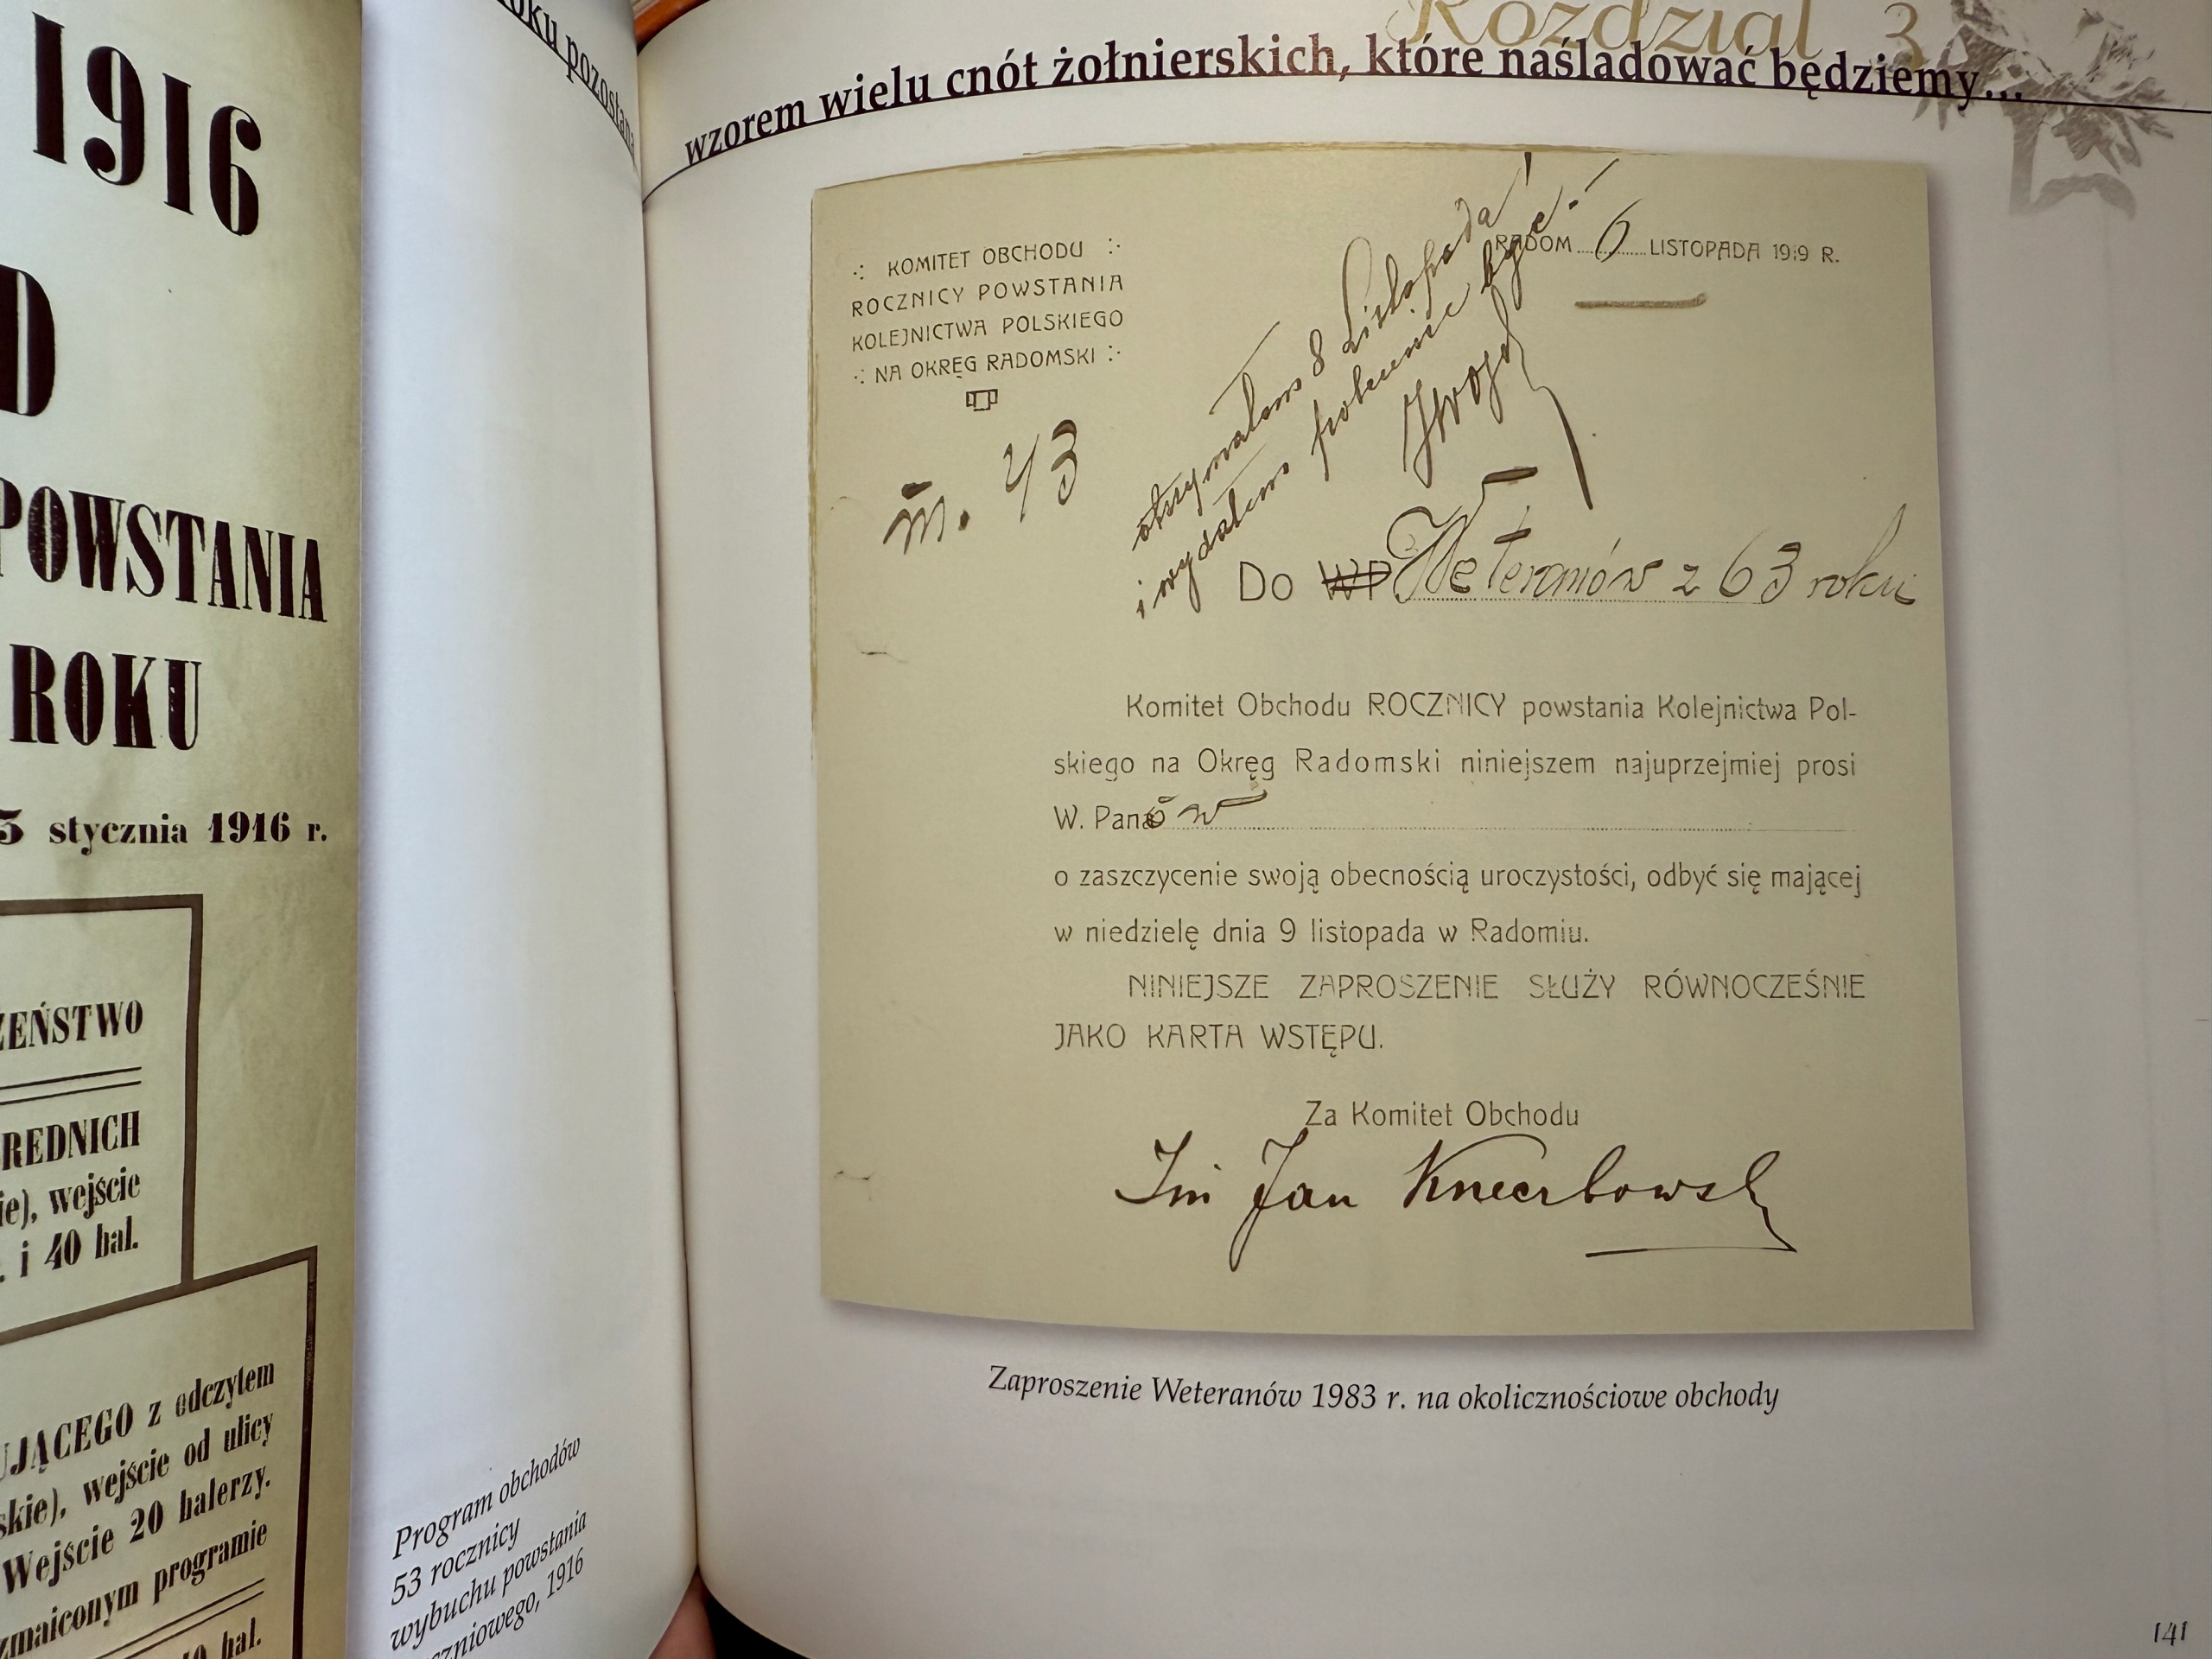 1916
D
POWSTANIA
ROKU
5 stycznia 1916 r.
ŻEŃSTWO
REDNICH
ie), wejście
. i 40 hal.
UJĄCEGO z odczytem
skie), wejście od ulicy
Wejście 20 halerzy.
zmaiconym programie
hal.
roku pozostaną
Program obchodów
53 rocznicy
wybuchu powstania
czniowego, 1916
Rozdział 3
wzorem wielu cnót żołnierskich, które naśladować będziemy...
KOMITET OBCHODU
ROCZNICY POWSTANIA
KOLEJNICTWA POLSKIEGO
NA OKRĘG RADOMSKI
RADOM 6 LISTOPADA 1919 R.
otrzymałem 8 Listopada!
i wydałem polecenie być!
43
Do WP Weteranów z 63 roku
Komitet Obchodu ROCZNICY powstania Kolejnictwa Pol-
skiego na Okręg Radomski niniejszem najuprzejmiej prosi
W. Panów
o zaszczycenie swoją obecnością uroczystości, odbyć się mającej
w niedzielę dnia 9 listopada w Radomiu.
NINIEJSZE ZAPROSZENIE SŁUŻY RÓWNOCZEŚNIE
JAKO KARTA WSTĘPU.
Za Komitet Obchodu
Jan
Zaproszenie Weteranów 1983 r. na okolicznościowe obchody
141